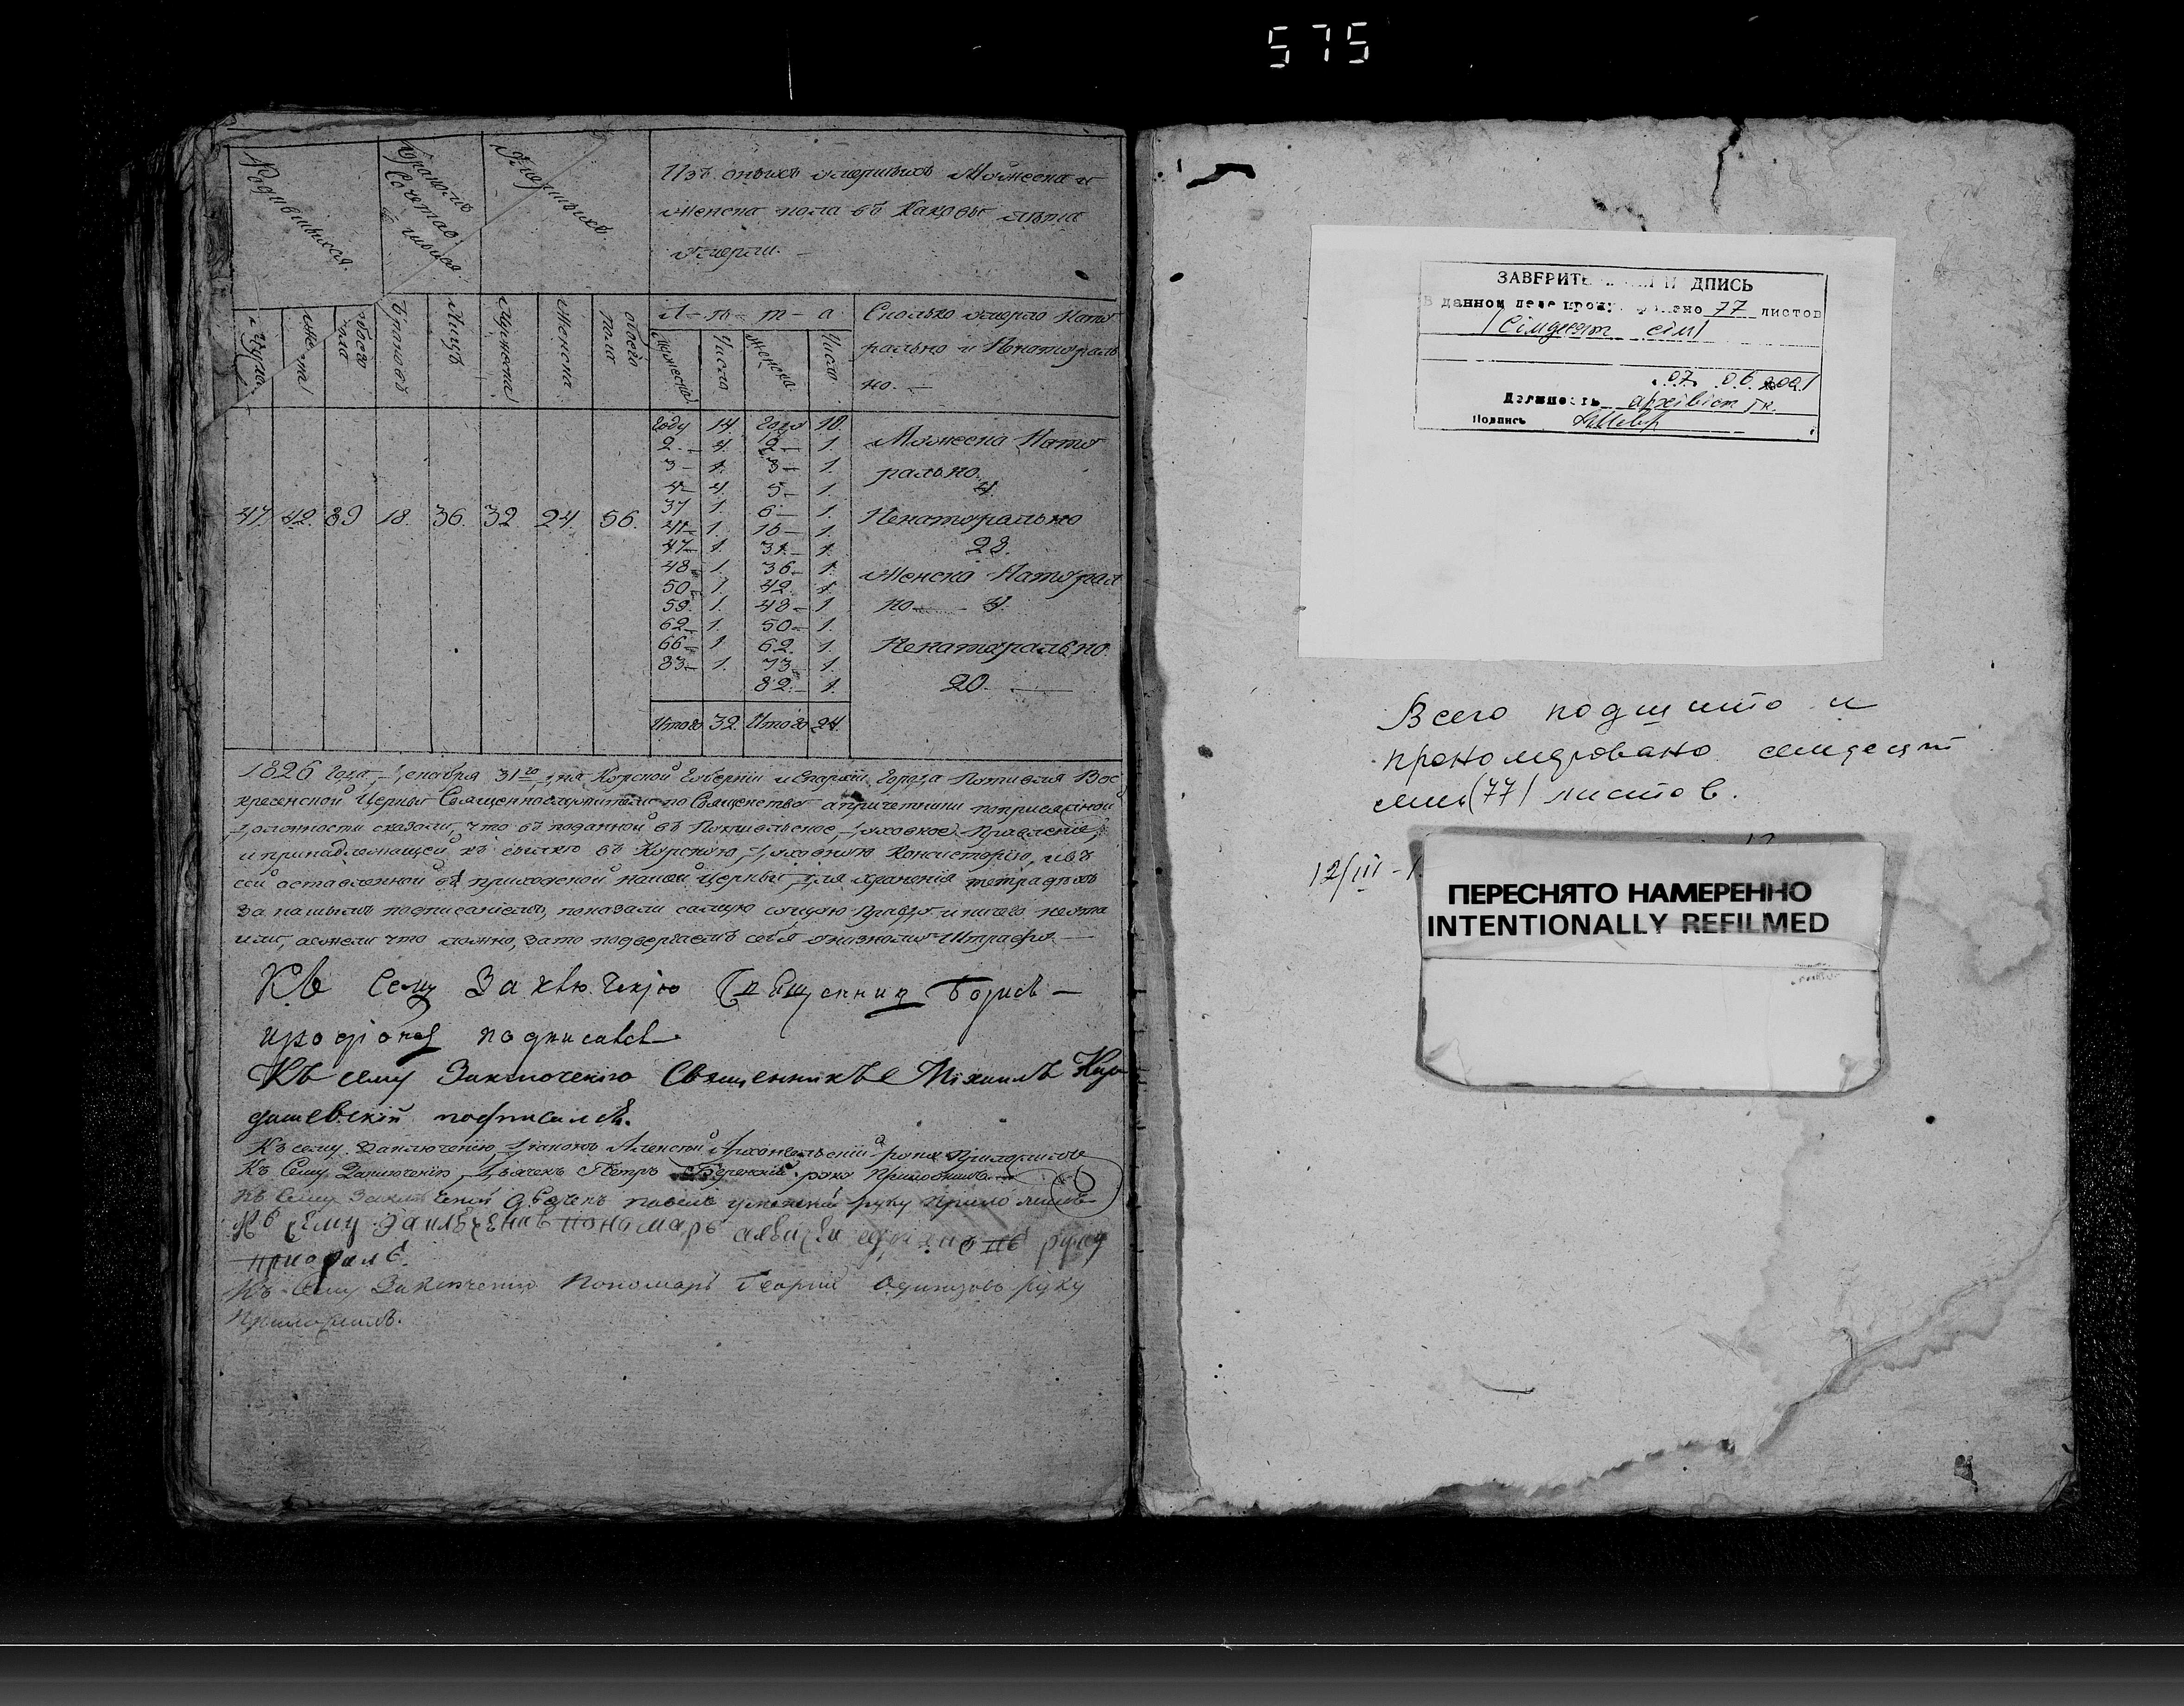 575
Родившихся.
Бракомъ Сочетавшихся.
Умершихъ.
Изъ оныхъ умершихъ Мужеска и
женска пола въ каковы лѣта
умерли. –
Мужска
Женска
обоего пола
Браковъ
Лицъ
Мужеска
Женска
обоего пола
Л – ѣ – т – а
Мужеска
Число
Женска
Число
Сколько умерло Нату
рально и Ненатураль
но. –
47. 42. 89 18. 36. 32. 24. 56.
году 14. году 10.
2. – 4. 2 – 1.
3 – 1. 3 – 1.
4 – 4. 5 – 1.
37 1. 6 – 1.
41 – 1. 16 – 1.
47 – 1. 31. – 1.
48 – 1. 36 – 1.
50 – 1. 42. 1.
59. 1. 48 – 1
62 – 1. 50 – 1.
66 – 1 62. 1.
83 – 1. 73 – 1.
82. – 1.
Итого 32. Итого 24.
Мужеска Нату
рально.
4.
Ненатурально
28.
Женска Натурал
но – 4.
Ненатурально.
20. –
1826 Года, Декабря 31го дня Курской Губерніи и Епархіи Города Путивля Вос
кресенской Церкви Священнослужители по Священству а причетники по присяжной
Должности сказали, что въ поданной въ Путивльское Духовное Правленіе,
и принадлежащей къ отсылке въ Курскую Духовную Консисторію, и въ
сей оставленной въ приходской нашей церкви для храненія тетрадяхъ
за нашимъ подписаніемъ, показали самую сущую правду и ничего не ута
или, а ежели что ложно, за то подвергаемъ себя указному Штрафу. –
Къ сему Заключенію Священник Борисъ –
подписался
Къ сему Заключенію Священникъ Михаилъ
подписался.
Къ сему Заключенію Діаконъ Алексѣй Архангельскій руку Приложилъ
Къ Сему Заключенію Дьячекъ Петръ руку Приложилъ
Къ Сему Дьячекъ Павелъ руку приложилъ
Къ сему пономарь руку
приложилъ.
Къ Сему Заключенію Пономарь Георгий Одинцовъ руку
Приложилъ.
ЗАВЕРИТЕ ДПИСЬ
В данном деле 77 листов
/Сімдесят сім/
07. 06. 2001
Должность архівіст Ік.
Подпись
Всего подшито и
прономеровано семдесят
семь (77) листов.
12/III – 1
ПЕРЕСНЯТО НАМЕРЕННО
INTENTIONALLY REFILMED